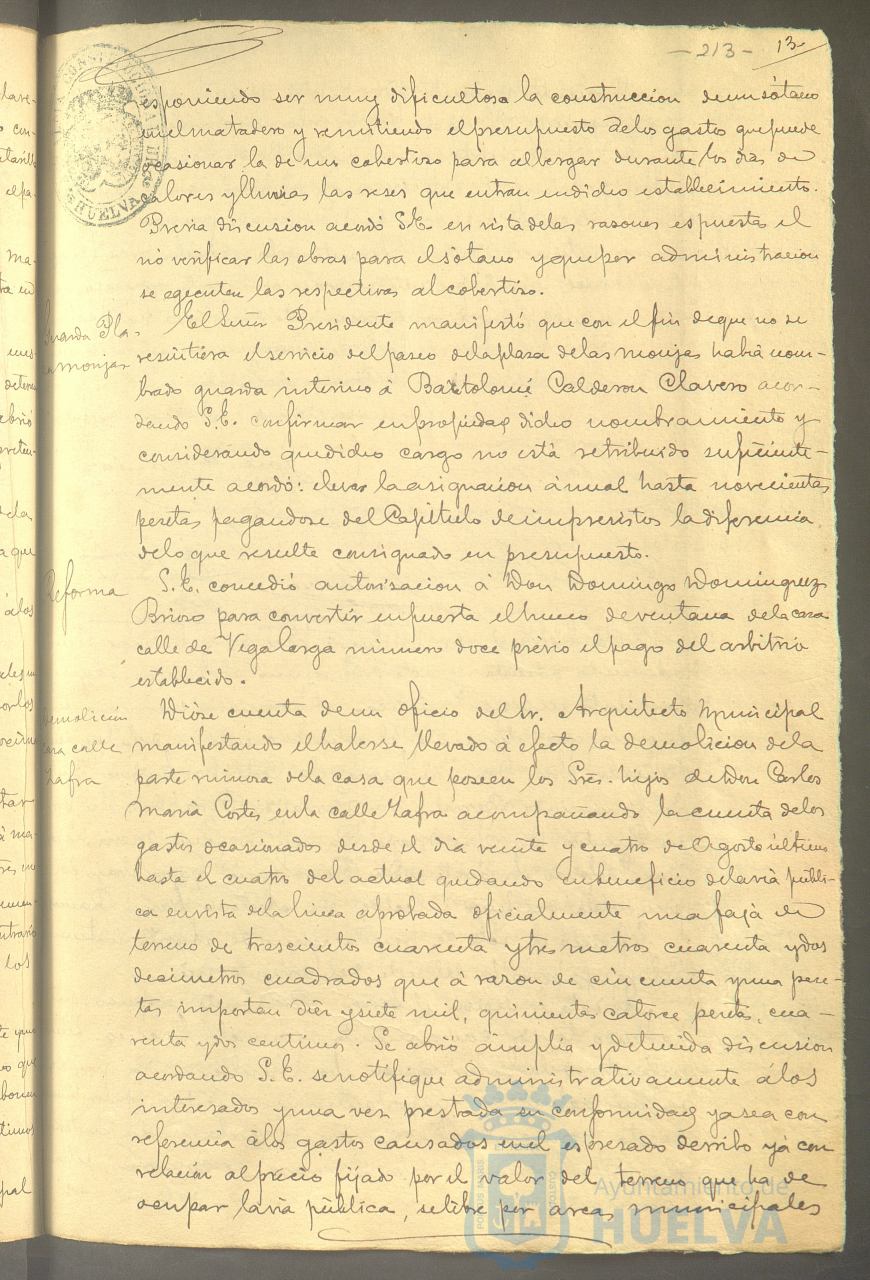 - 213 -   13
esponiendo ser muy dificultosa la construccion de un sótano
en el matadero y remitiendo el presupuesto de los gastos que puede
ocasionar la de un cobertizo para albergar durante los dias de
calores y lluvias las reses que entran en dicho establecimiento.
Previa discusion acordó S.E. en vista de las razones espuestas el
no verificar las obras para el sótano y que por administracion
se egecuten las respectivas al cobertizo.
Guarda Pla-
monjas
El Señor Presidente manifestó que con el fin de que no se
resintiera el servicio del paseo de la plaza de las monjas habia nom-
brado guarda interino á Bartolomé Calderon Clavero acor-
dando S.E. confirmar en propiedad dicho nombramiento y
considerando que dicho cargo no está retribuido suficiente-
mente acordó: elevar la asignacion ánual hasta novecientas
pesetas pagandose del Capitulo de imprevistos la diferencia
de lo que resulte consignado en presupuesto.
Reforma
S.E. concedió autorisacion á Don Domingo Dominguez
Brioso para convertir en puerta el hueco de ventana de la casa
calle de Vegalarga número doce prévio el pago del arbitrio
establecido.
Demolición
casa calle
Zafra
Dióse cuenta de un oficio del Sr. Arquitecto Municipal
manifestando el haberse llevado á efecto la demolicion de la
parte ruinosa de la casa que poseen los Sres. hijos de Don Carlos
Maria Cortes en la calle Zafra acompañando la cuenta de los
gastos ocasionados desde el dia veinte y cuatro de Agosto último
hasta el cuatro del actual quedando en beneficio de la via públi-
ca en vista de la linea aprobada oficialmente una faja de
terreno de trescientos cuarenta y tres metros cuarenta y dos
decimetros cuadrados que á razon de cincuenta y una pese-
tas importan diez y siete mil, quinientas catorce pesetas, cua-
renta y dos centimos. Se abrió ámplia y detenida discusion
acordando S.E. se notifique administrativamente á los
interesados y una vez prestada su conformidad ya sea con
referencia á los gastos causados en el espresado derribo yá con
relacion al precio fijado por el valor del terreno que ha de
ocupar la via pública, se libre por arcas municipales
CONSTITUCIONAL
HUELVA
Ayuntamiento de
HUELVA